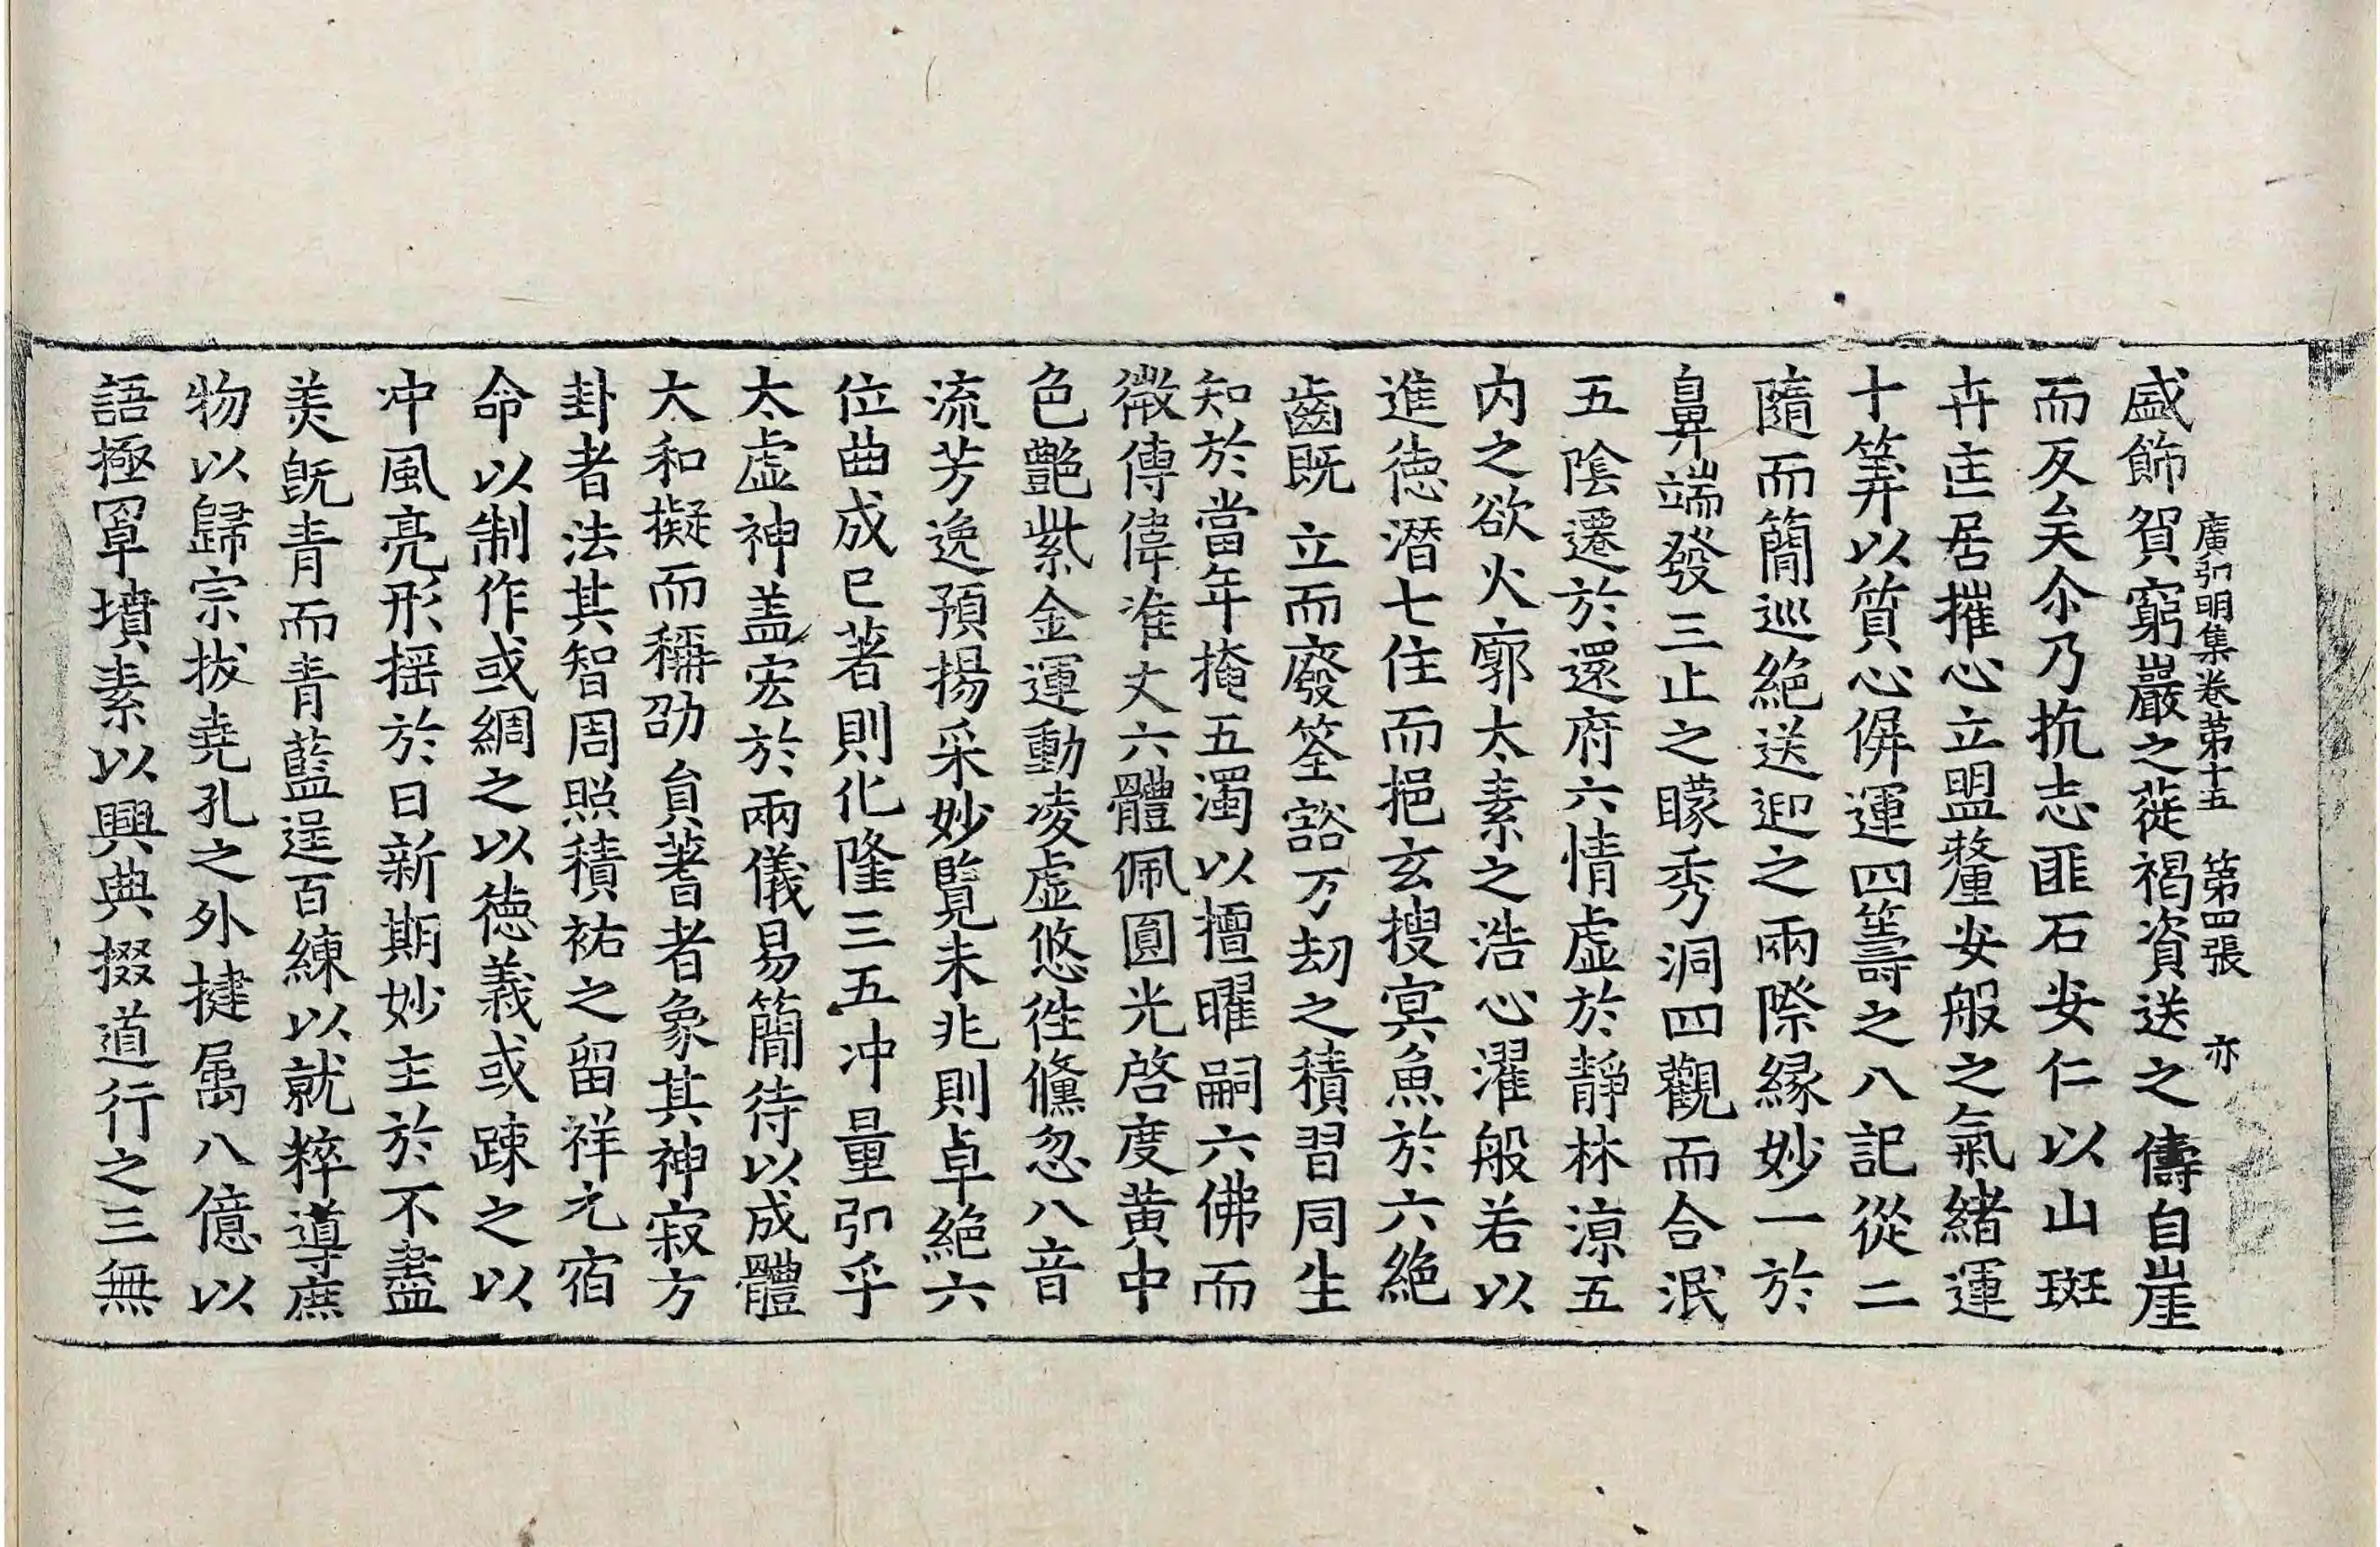 廣弘明集卷苐十五　第四張　亦
盛飾賀窮巖之蓰褐資送之儔自崖
而反矣尒乃抗志匪石安仁以山斑
卉匡居摧心立盟釐安般之氣緒運
十筭以質心倂運四籌之八記從二
隨而簡巡絶送迎之兩際縁妙一於
鼻端發三止之矇秀洞四觀而合泯
五陰遷於還府六情虛於靜林涼五
内之欲火廓太素之浩心濯般若以
進徳潛七住而挹玄搜冥魚於六絶
齒既立而廢筌豁万劫之積習同生
知於當年掩五濁以擅曜嗣六佛而
微傳偉准丈六體佩圓光啓度黄中
色艶紫金運動凌虛悠徃儵忽八音
流芳逸預揚采妙覧未兆則卓絶六
位曲成已著則化隆三五冲量弘乎
太虛神盖宏於兩儀易簡待以成體
大和擬而稱劭貟蓍者象其神寂方
卦者法其智周照積祐之留祥元宿
命以制作或綢之以徳義或踈之以
冲風亮形揺於日新期妙主於不盡
羙旣青而青藍逞百練以就粹導庶
物以歸宗拔堯孔之外揵屬八億以
語極罩墳素以興典掇道行之三無